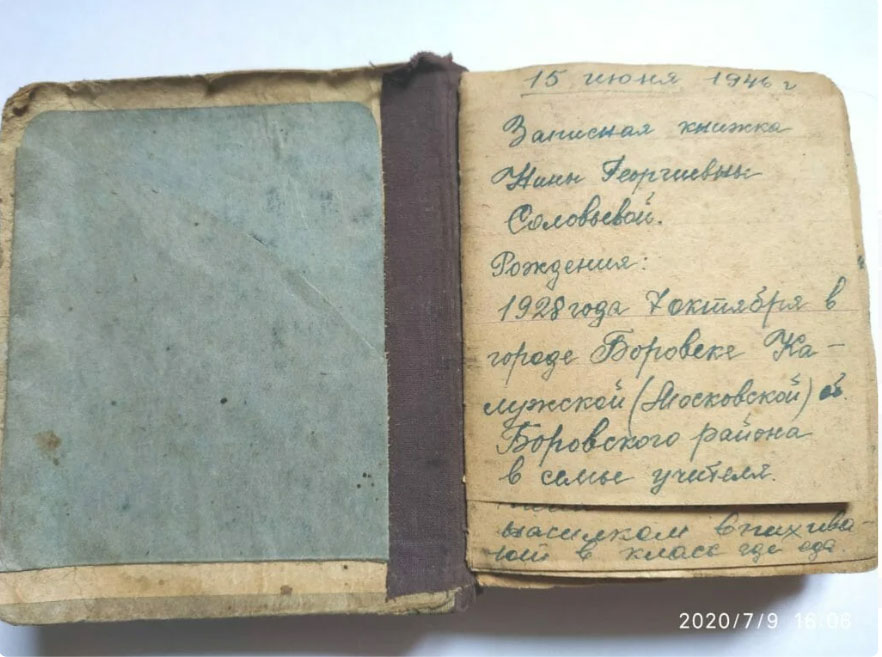 15 июня 1946 г
Записная книжка
Нины Георгиевны
Соловьевой.
Рождения:
1928 года 7 октября в
городе Боровске Ка-
лужской (Московской) о.
Боровского района
в семье учителя.
насилком впихива-
ют в класс где
2020/7/9 16:06